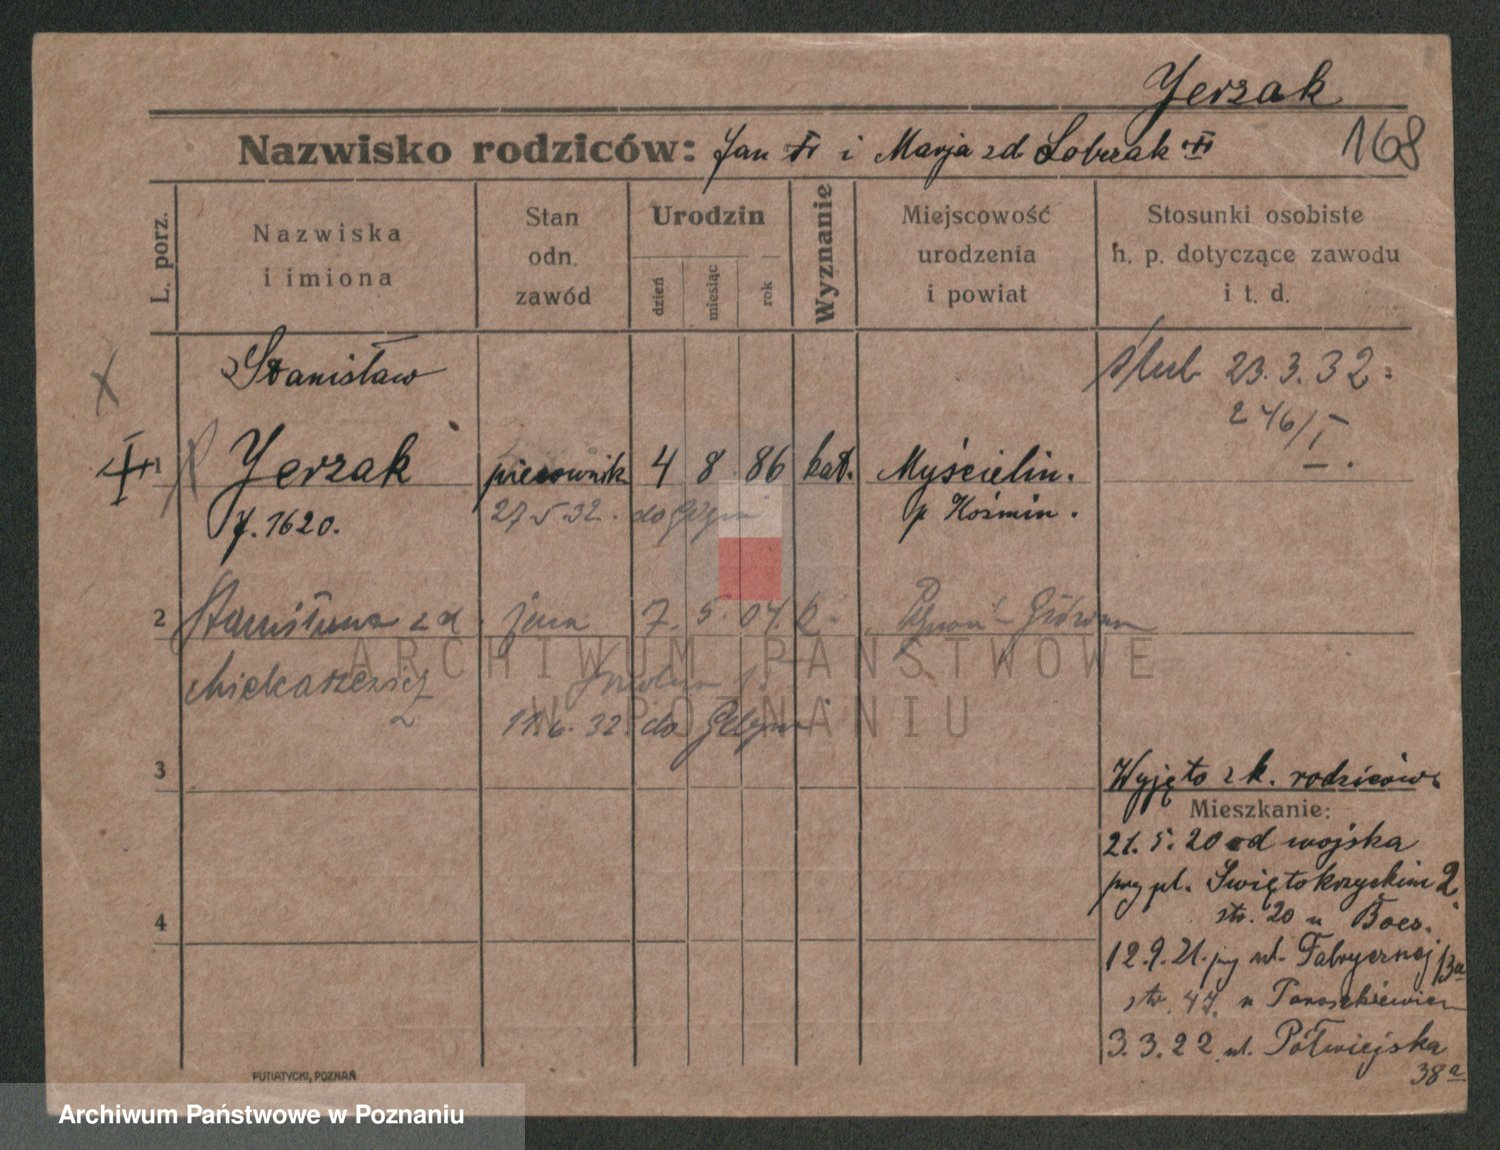 Jerzak
168
Nazwisko rodziców: Jan i Marja zd. Lobczak
L. porz.
Nazwiska i imiona
Stan odn. zawód
Urodzin
dzień
miesiąc
rok
Wyznanie
Miejscowość urodzenia i powiat
Stosunki osobiste h. p. dotyczące zawodu i t. d.
Stanisław
ślub 23.3.32
246/I
1 Jerzak 4 8 86 kat. Myścielin.
J. 1620. 27.5.32. do p Koźmin.
2 7. 5. 04. k.
ARCHIWUM PAŃSTWOWE
W POZNANIU
11.6.32. do
3
Wyjęto z k. rodziców.
Mieszkanie:
21.5.20 od wojska
przy pl. Świętokrzyskim 2.
str. 20 u
4
12.9.21. przy ul. Fabrycznej 13a
str. 47. u
3.3.22 ul. Półwiejska
38a
PUTIATYCKI, POZNAŃ
Archiwum Państwowe w Poznaniu